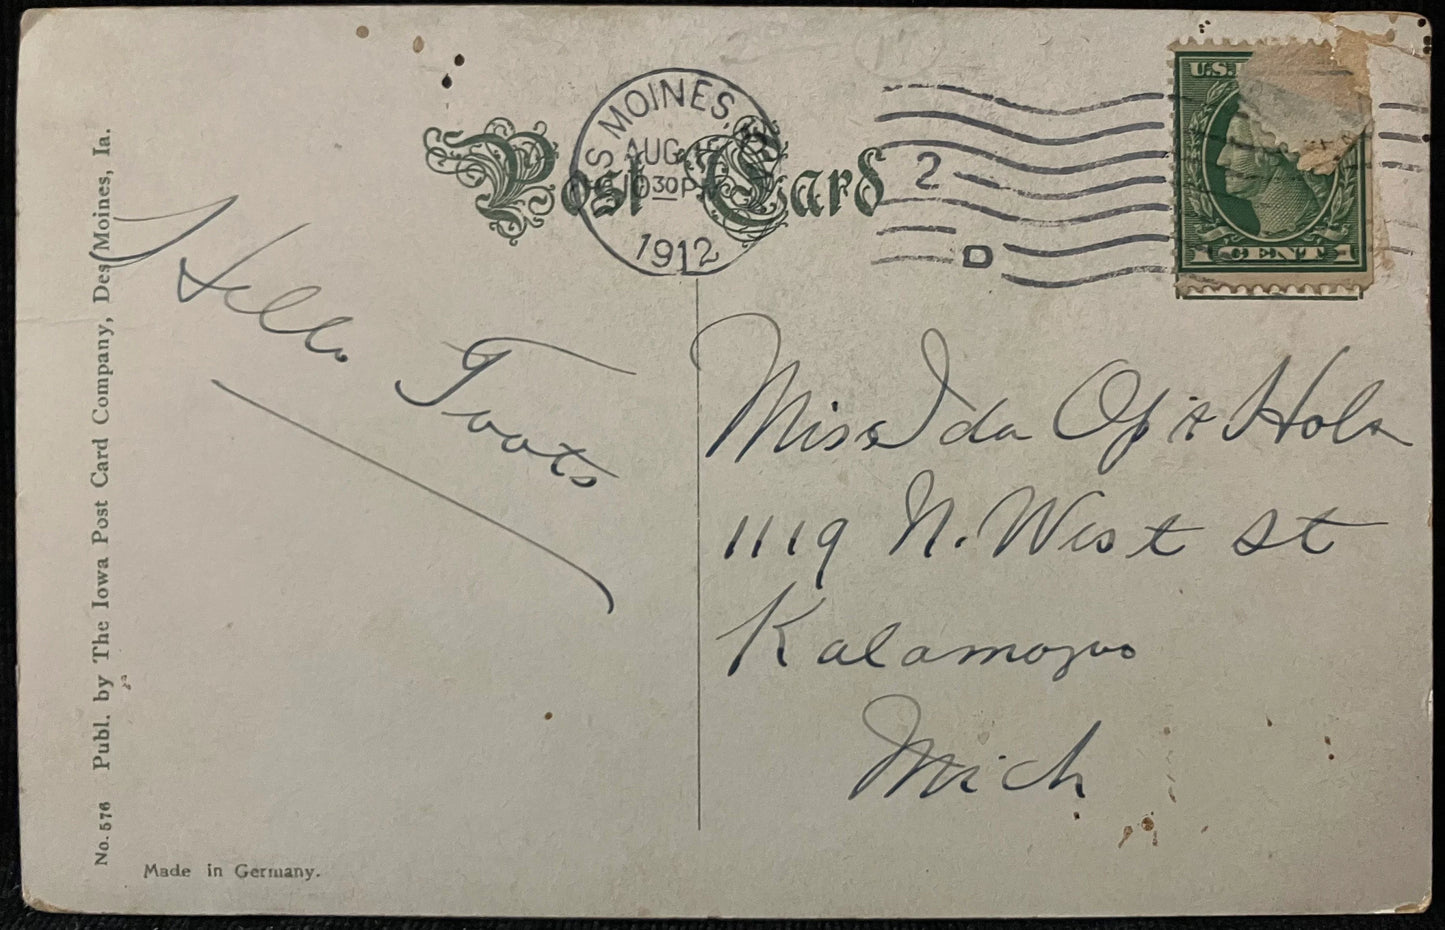 Post Card
S MOINES,
AUG
30P
1912
2
D
U.S.
1 CENT 1
Hello Toots
Miss Ida
1119 N. West St
Kalamazoo
Mich
No. 576 Publ. by The Iowa Post Card Company, Des Moines, Ia.
Made in Germany.